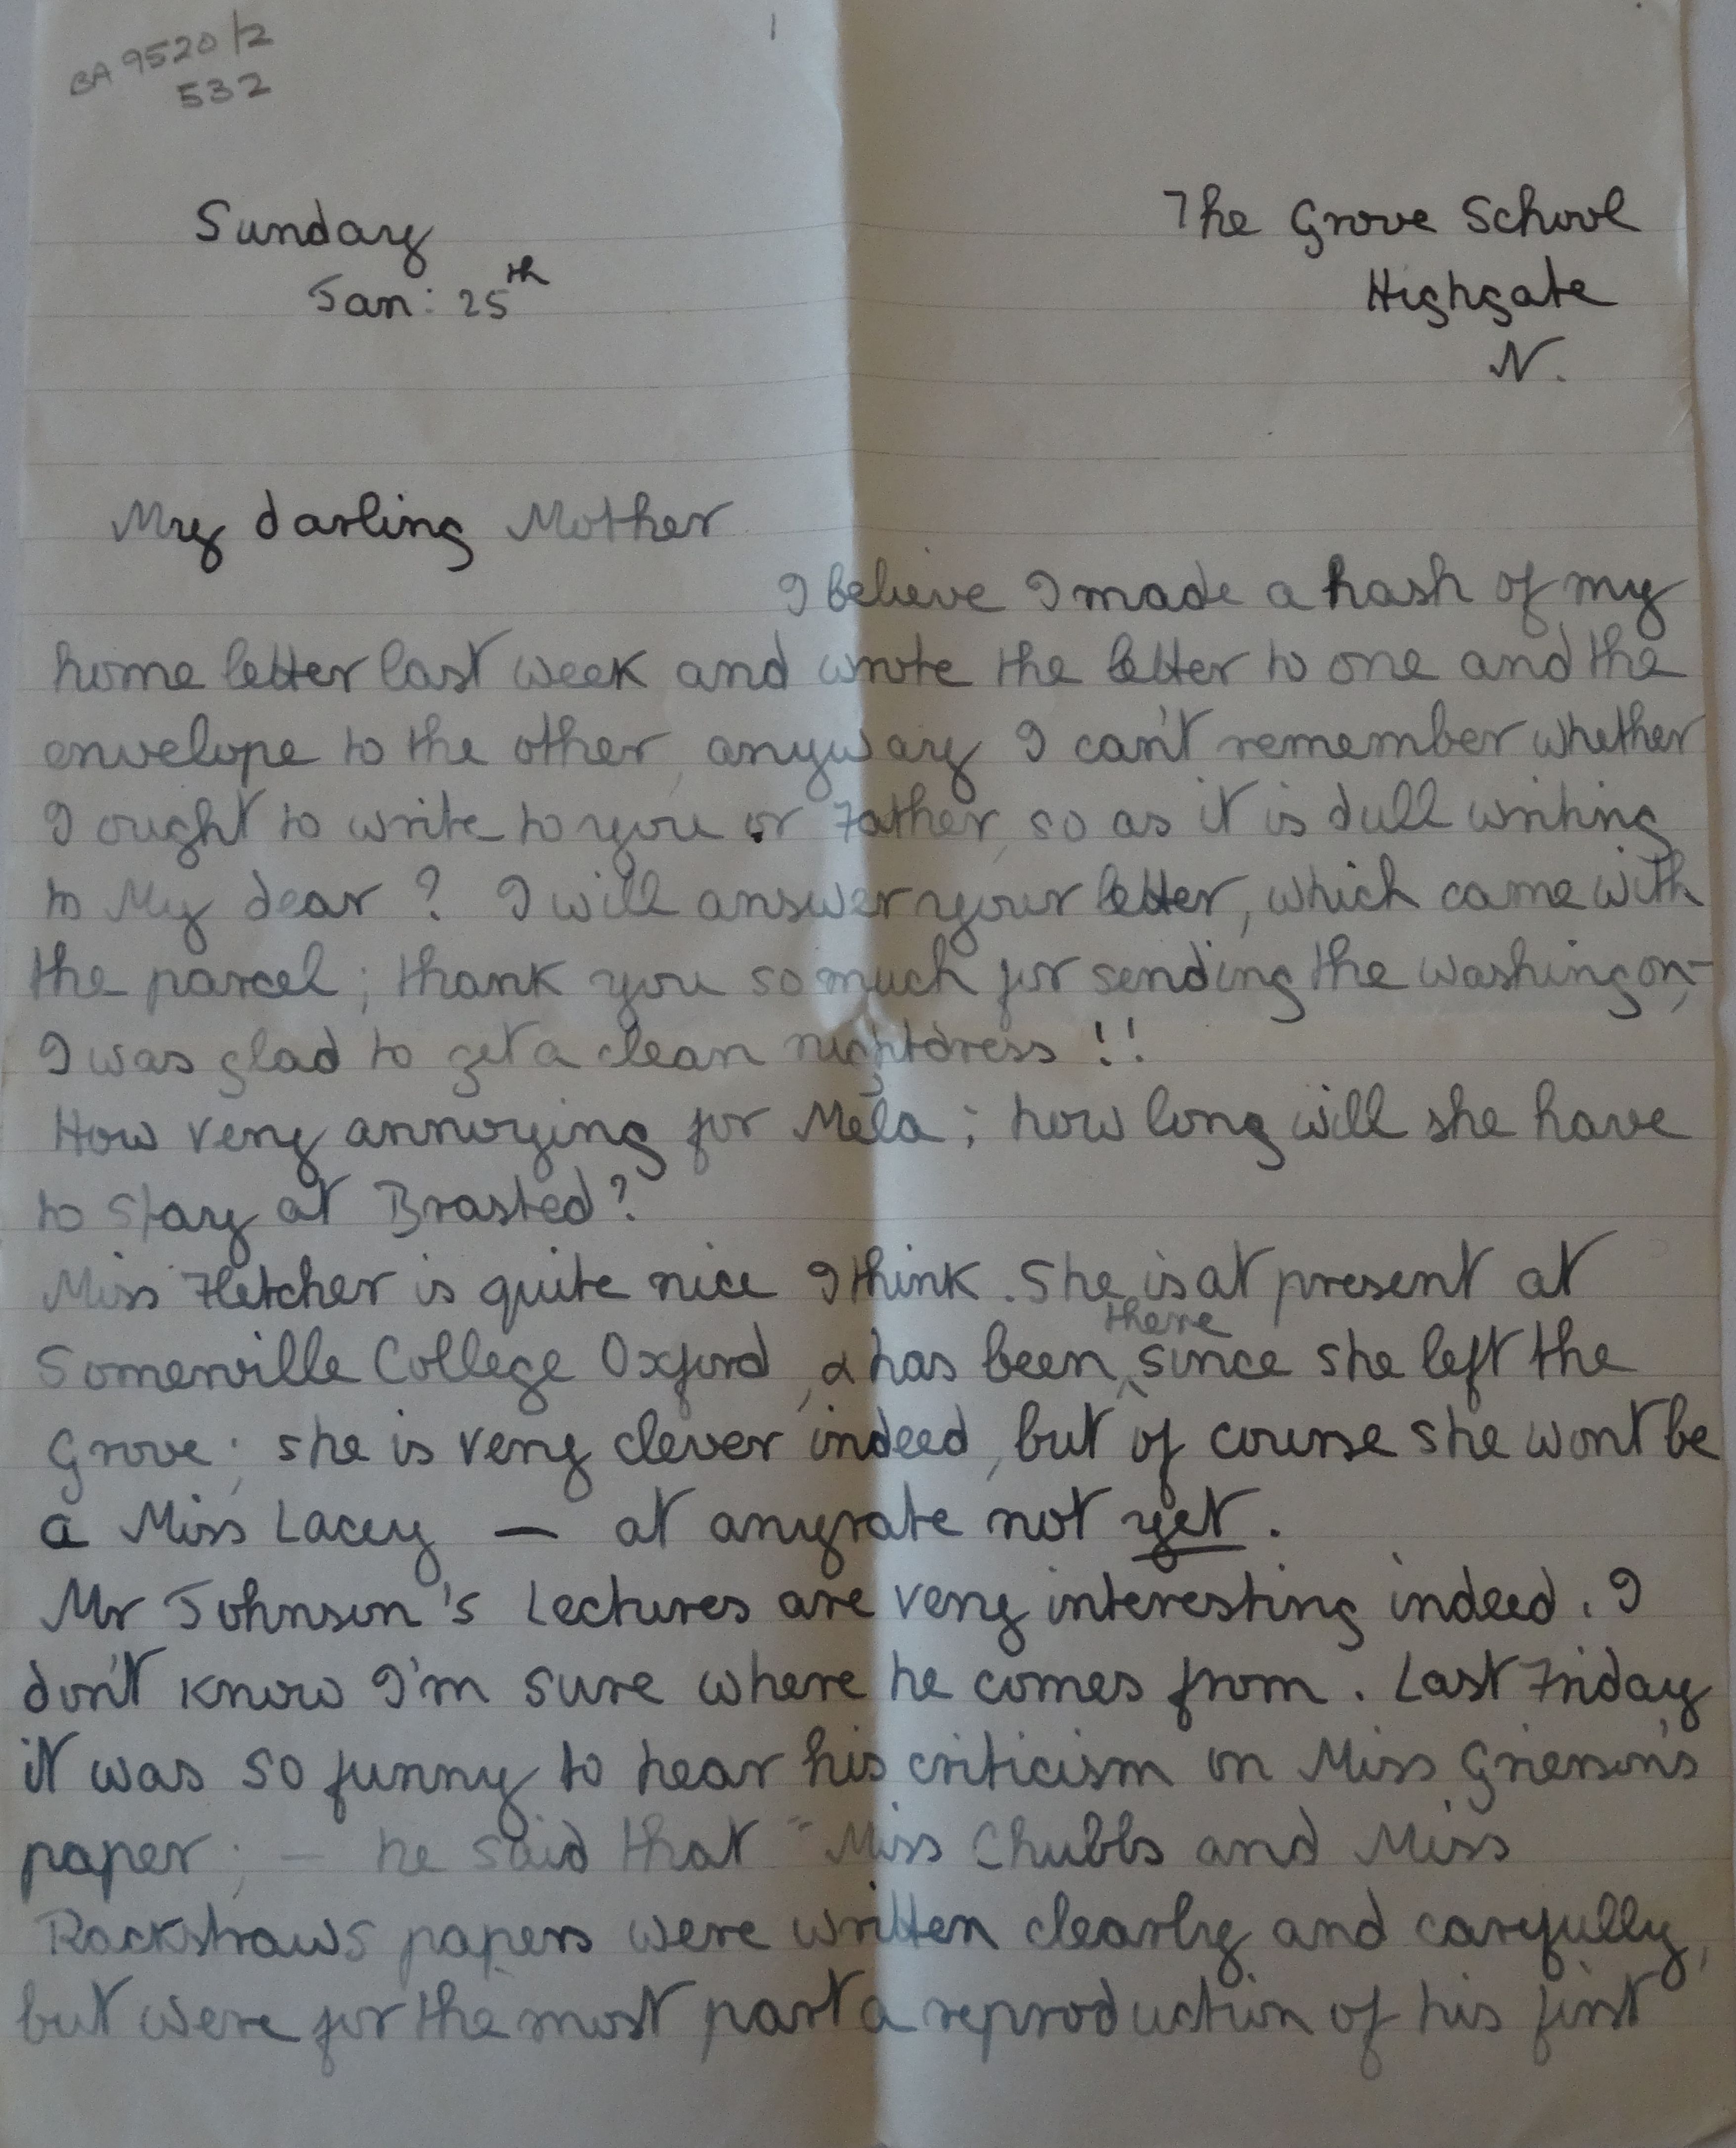 BA 9520/2
532
1
Sunday
Jan: 25th
The Grove School
Highgate
N.
My darling Mother
I believe I made a hash of my
home letter last week and wrote the letter to one and the
envelope to the other, anyway I can't remember whether
I ought to write to you or Father, so as it is dull writing
to My dear ? I will answer your letter, which came with
the parcel; thank you so much for sending the washing on,-
I was glad to get a clean nightdress !!
How very annoying for Mela; how long will she have
to stay at Brasted?
Miss Fletcher is quite nice I think. She is at present at
Somerville College Oxford, & has been there since she left the
Grove; she is very clever indeed, but of course she wont be
a Miss Lacey — at anyrate not yet.
Mr Johnson's Lectures are very interesting indeed. I
don't know I'm sure where he comes from. Last Friday
it was so funny to hear his criticism on Miss Grierson's
paper; — he said that "Miss Chubbs and Miss
Rackstraws papers were written clearly and carefully,
but were for the most part a reproduction of his first